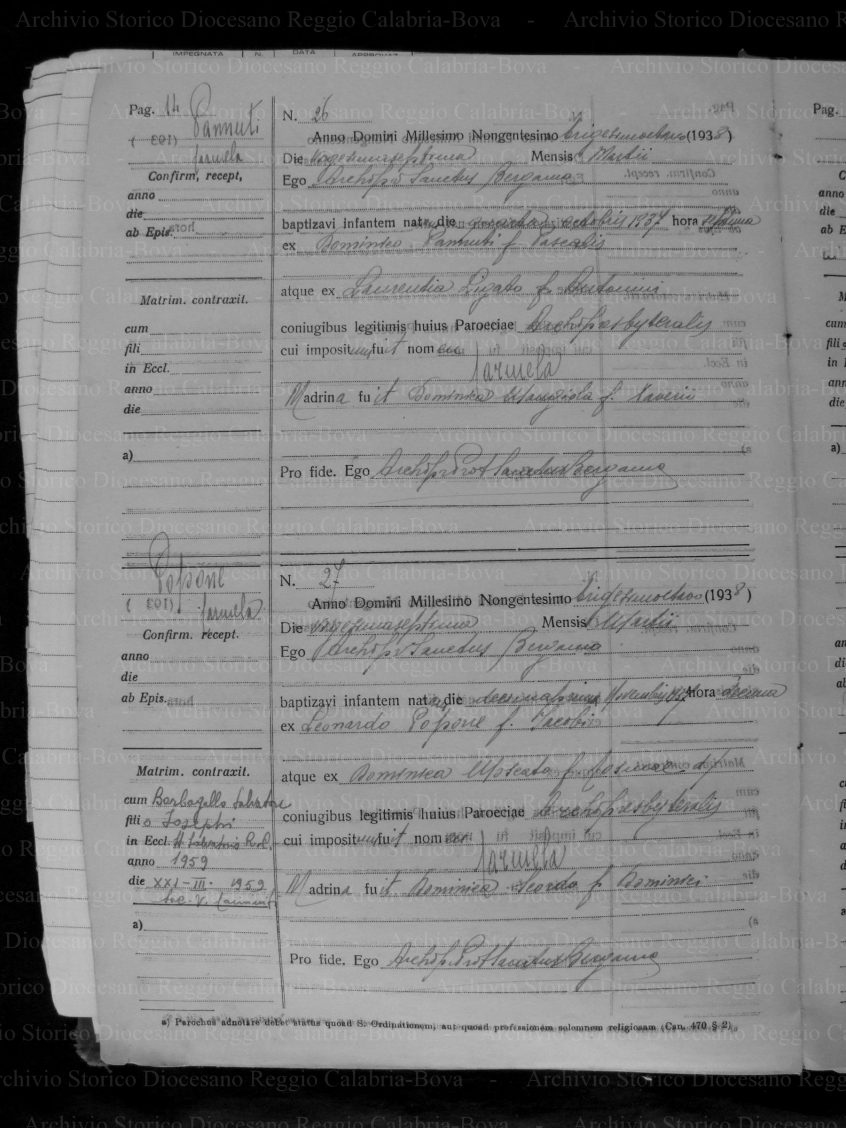 Archivio Storico Diocesano Reggio Calabria-Bova
IMPEGNATA N. DATA
Pag. 14
Pannuti
Carmela
Confirm, recept,
anno
die
ab Epis.
Matrim. contraxit.
cum
fili
in Eccl.
anno
die
a)
N. 26
Anno Domini Millesimo Nongentesimo trigesimooctavo (1938)
Die vigesimaseptima Mensis Martii
Ego Archip. Sanctus Bergamo
baptizavi infantem nat die octobris 1937 hora septima
ex Dominico Pannuti f. Pascalis
atque ex Laurentia Ligato f. Antonini
coniugibus legitimis huius Paroeciae Archipresbyteralis
cui impositum fuit nomen
Carmela
Madrina fuit Dominica f. Xaverii
Pro fide. Ego Archip. Prot. Sanctus Bergamo
Popone
Carmela
Confirm. recept.
anno
die
ab Epis.
Matrim. contraxit.
cum Barbagallo Salvatore
fili o Josephi
in Eccl.
anno 1959
die XXI-III- 1959
a)
N. 27
Anno Domini Millesimo Nongentesimo trigesimooctavo (1938)
Die vigesimaseptima Mensis Martii
Ego Archip. Sanctus Bergamo
baptizavi infantem natam die hora decima
ex Leonardo Popone f. Jacobi
atque ex Dominica Moscato f.
coniugibus legitimis huius Paroeciae Archipresbyteralis
cui impositum fuit nomen
Carmela
Madrina fuit Dominica Scordo f. Dominici
Pro fide. Ego Archip. Prot. Sanctus Bergamo
a) Parochus adnotare debet status quoad S. Ordinationem, aut quoad professionem solemnem religiosam (Can. 470 § 2)
Pag.